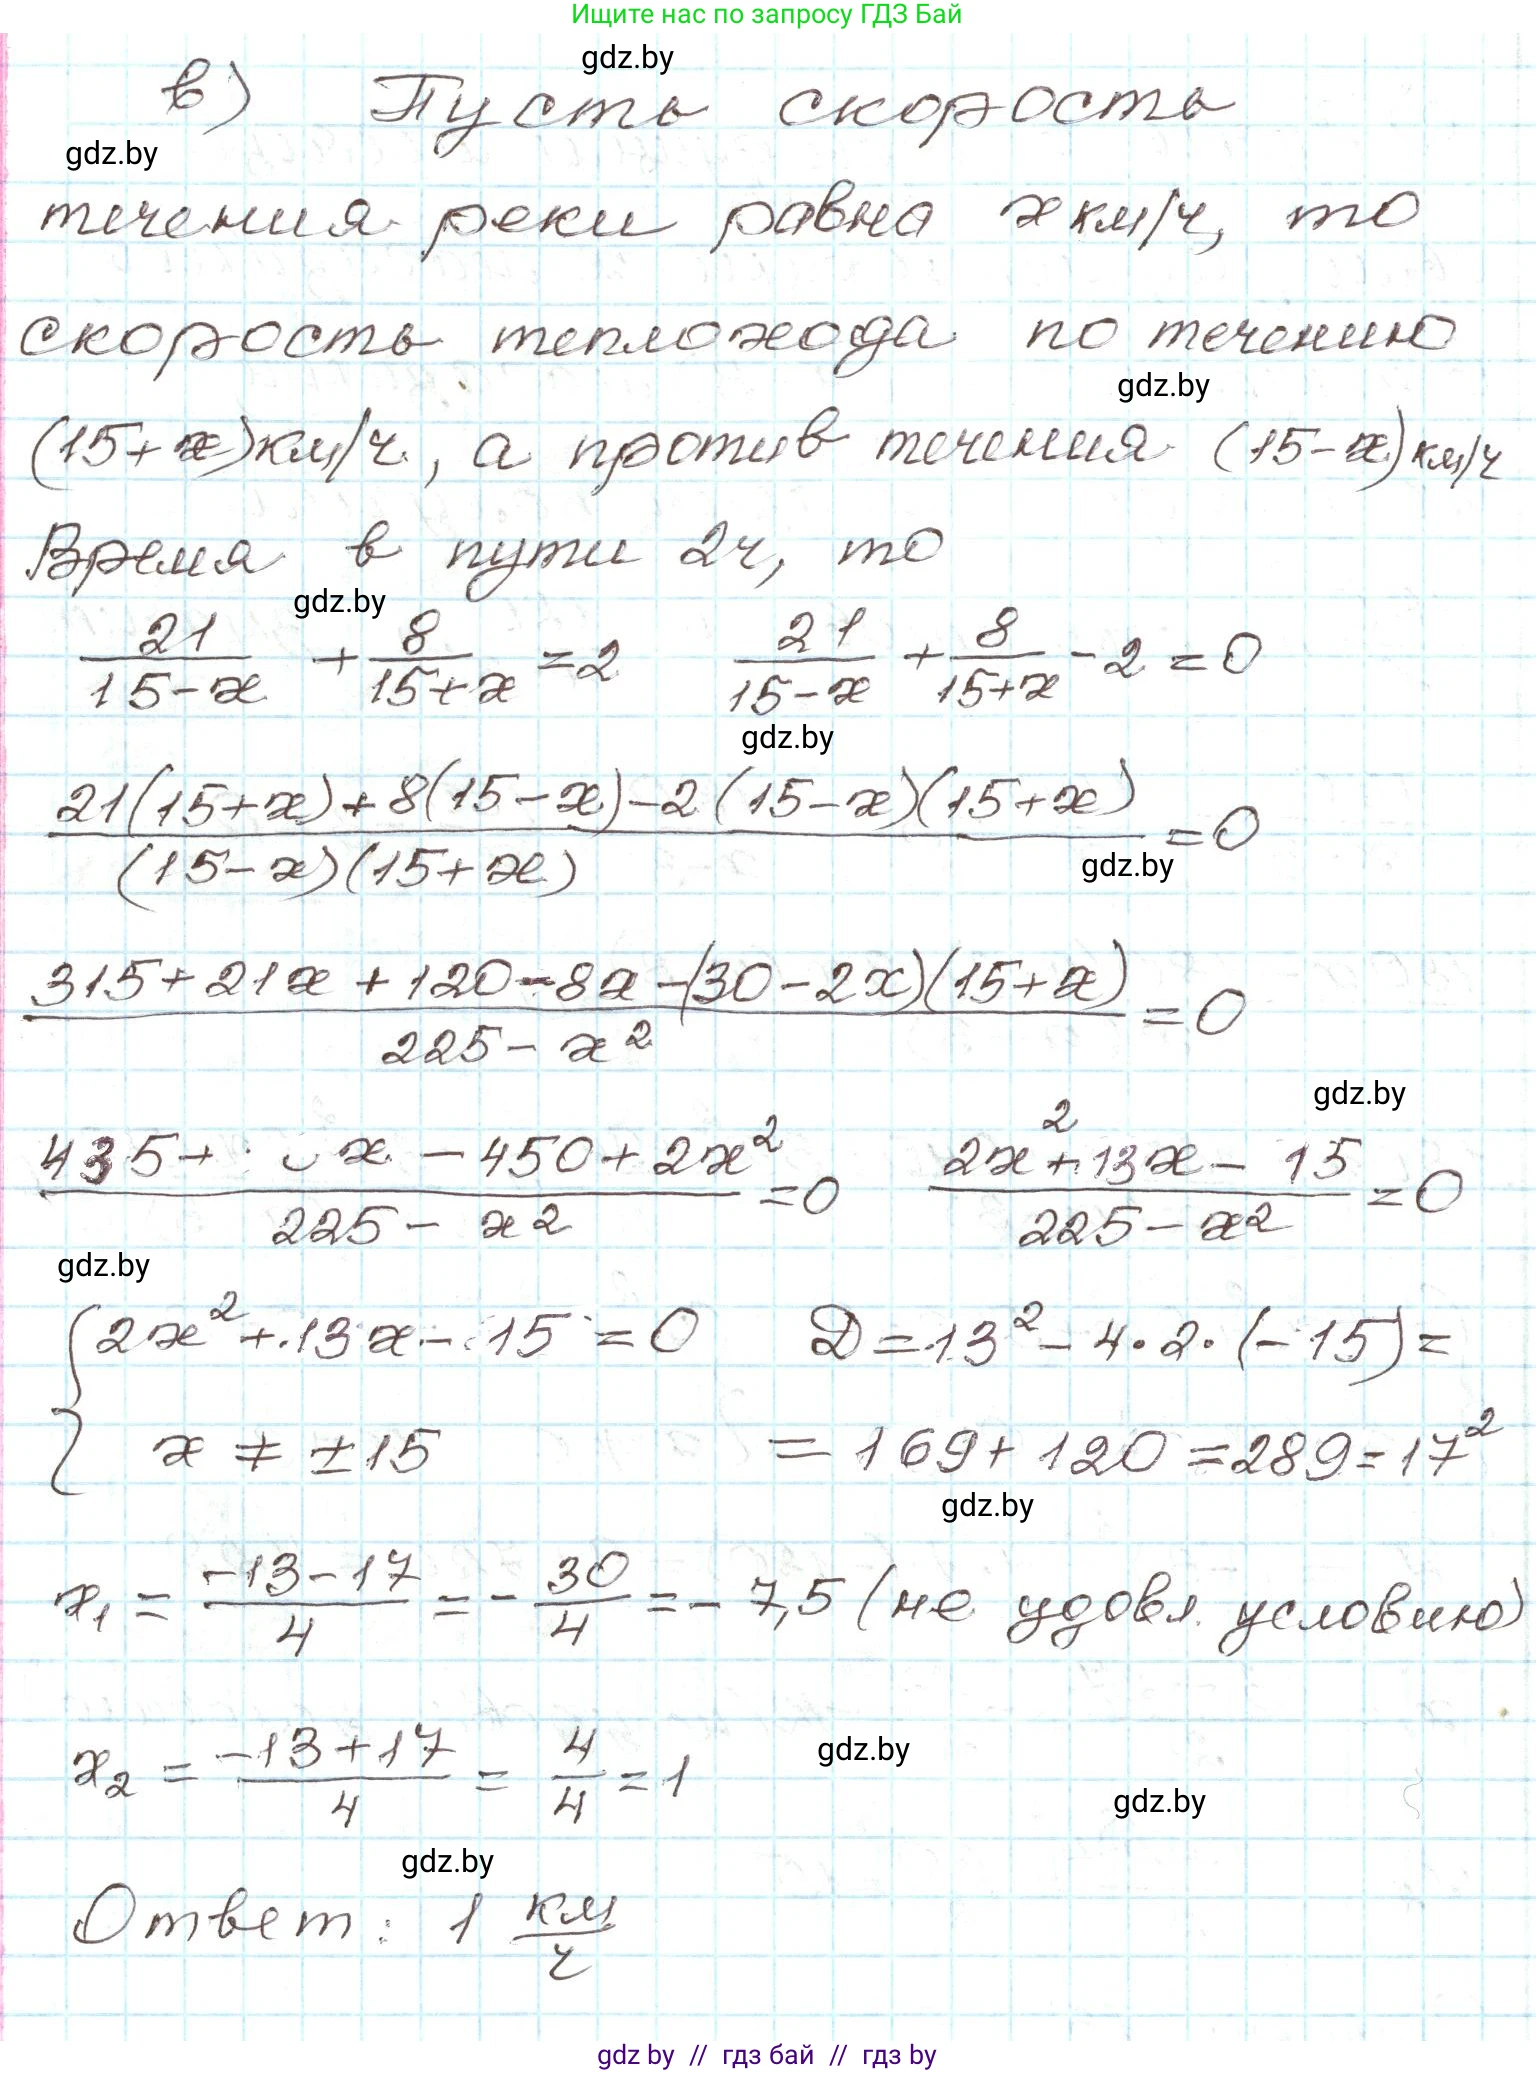 Ищите нас по запросу ГДЗ Бай
gdz.by
в) Пусть скорость
gdz.by
течения реки равна x км/ч, то
скорость теплохода по течению
gdz.by
(15+x)км/ч, а против течения (15-x) км/ч
Время в пути 2ч, то
gdz.by
21/(15-x) + 8/(15+x) = 2   21/(15-x) + 8/(15+x) - 2 = 0
gdz.by
(21(15+x)+8(15-x)-2(15-x)(15+x))/((15-x)(15+x)) = 0
gdz.by
(315+21x+120-8x-(30-2x)(15+x))/(225-x²) = 0
gdz.by
(435+ x - 450 + 2x²)/(225-x²) = 0   (2x²+13x-15)/(225-x²) = 0
gdz.by
{ 2x²+13x-15=0   D=13²-4·2·(-15)=
x ≠ ±15   =169+120=289=17²
gdz.by
x₁ = (-13-17)/4 = -30/4 = -7,5 (не удовл. условию)
x₂ = (-13+17)/4 = 4/4 = 1
gdz.by
gdz.by
gdz.by
Ответ: 1 км/ч
gdz by // гдз бай // гдз by